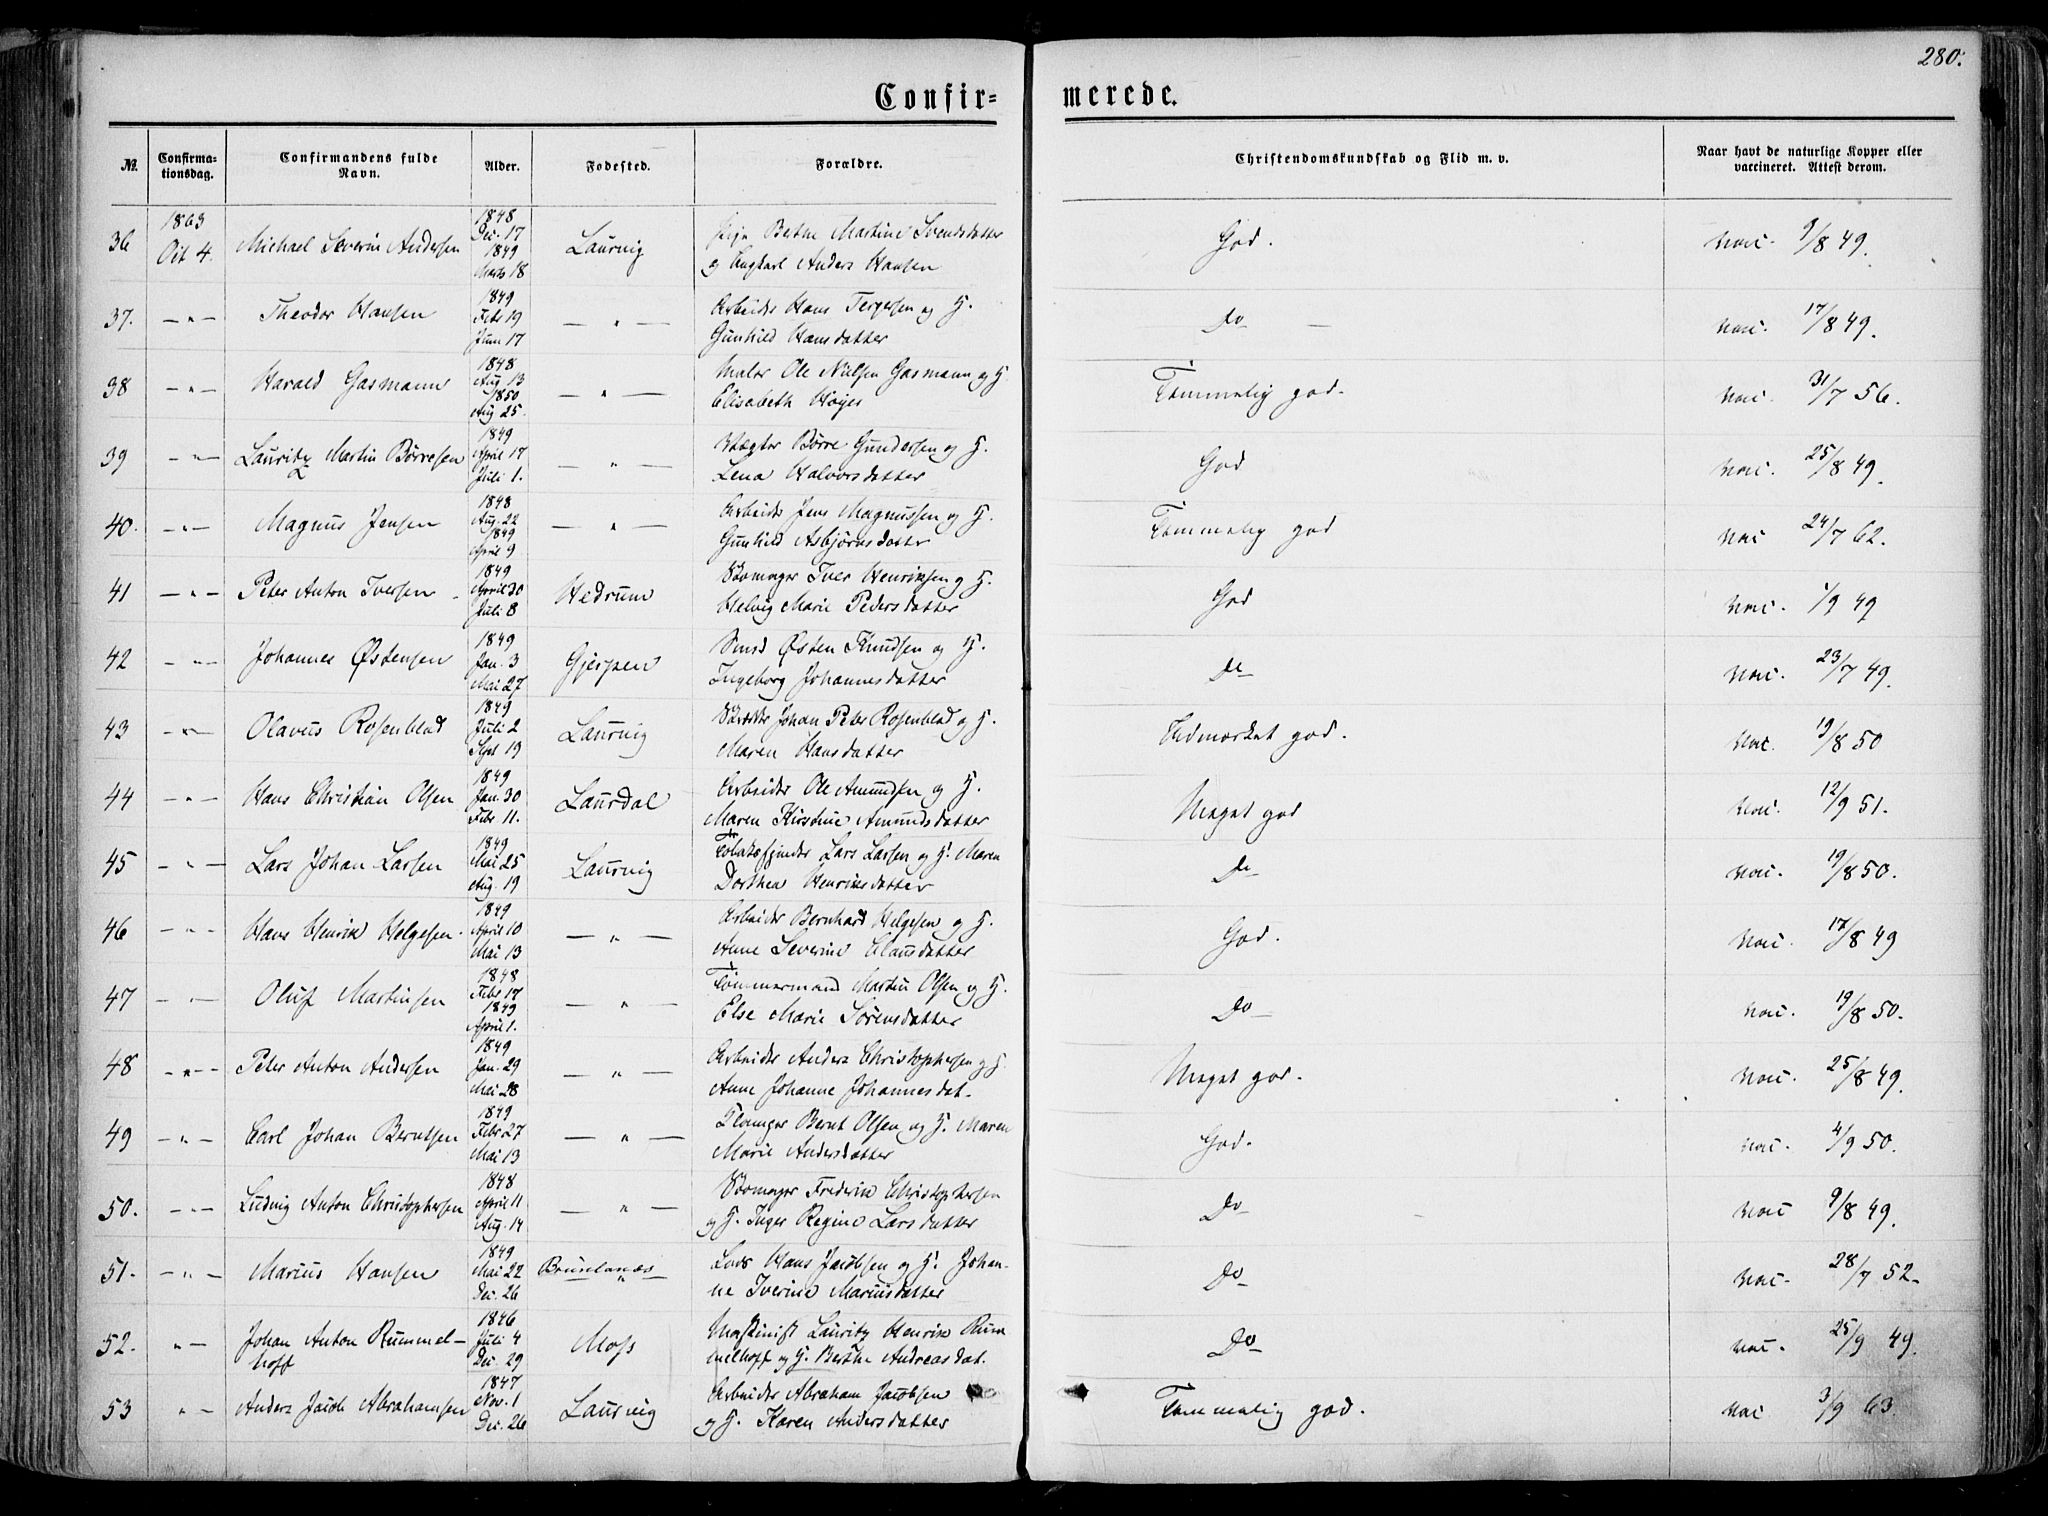 280.
Confir-
merede.
№
Confirma-
tionsdag.
Confirmandens fulde
Navn.
Alder.
Fødested.
Forældre.
Christendomskundskab og Flid m. v.
Naar havt de naturlige Kopper eller
vaccineret. Attest derom.
36 1863 Oct 4. Michael Severin Andersen 1848 Dec. 17 1849 Marts 18 Laurvig Pige Bethe Martine Svendsdatter
og Ungkarl Anders Hansen God. vac. 9/8 49.
37. —"— Theodor Hansen 1849 Febr 19 Juni 17 —"— Arbeider Hans Tergersen og H.
Gunhild Hansdatter Do — vac. 17/8 49.
38 —"— Harald Gasmann 1848 Aug 13 1850 Aug 25. —"— Maler Ole Nielsen Gasmann og H
Elisabeth Høyer Temmelig god. vac. 31/7 56.
39 —"— Lauritz Martin Børresen 1849 April 17 Juli 1. —"— Vægter Børre Gundersen og H.
Lena Halvorsdatter God vac. 25/8 49.
40. —"— Magnus Jensen 1848 Aug. 22 1849 April 9 —"— Arbeider Jens Magnussen og H.
Gunhild Asbjørnsdatter Temmelig god vac 24/7 62.
41 —"— Peter Anton Iversen 1849 April 30 Juli 8 Hedrum Skomager Iver Henriksen og H.
Helvig Marie Pedersdatter God vac. 1/9 49
42 —"— Johannes Østensen 1849 Jan. 3 Mai 27 Gjerpen Smed Østen Knudsen og H.
Ingeborg Johannesdatter Do vac. 23/7 49.
43 —"— Olavus Rosenblad 1849 Juli 2 Sept 19 Laurvig Johan Peter Rosenblad og H.
Maren Hansdatter Udmærket god. vac. 19/8 50
44 —"— Hans Christian Olsen 1849 Jan. 30 Febr 11. Laurdal Arbeider Ole Amundsen og H.
Maren Kirstine Amundsdatter Meget god vac. 12/9 51.
45 —"— Lars Johan Larsen 1849 Mai 25 Aug. 19 Laurvig Tobaksspinder Lars Larsen og H. Maren
Dorthea Henriksdatter Do vac. 19/8 50.
46 —"— Hans Henrik Helgesen 1849 April 10 Mai 13 —"— Arbeider Bernhard Helgesen og H.
Anne Severine Clausdatter God. vac. 17/8 49
47 —"— Oluf Martinsen 1848 Febr 17 1849 April 1. —"— Tømmermand Martin Olsen og H.
Else Marie Sørensdatter Do vac. 19/8 50.
48 —"— Peter Anton Andersen 1849 Jan. 29 Mai 28 —"— Arbeider Anders Christophersen og H.
Anne Johanne Johannesdat. Meget god. vac. 25/8 49.
49 —"— Carl Johan Berntsen 1849 Febr 27 Mai 13 —"— Bernt Olsen og H. Maren
Marie Andersdatter God. vac. 4/9 50.
50. —"— Ludvig Anton Christophersen 1848 April 11 Aug. 14 —"— Skomager Frederik Christophersen
og H. Inger Regine Larsdatter Do vac 9/8 49.
51. —"— Marius Hansen 1849 Mai 22 Dec. 26 Brunlanæs Lods Hans Jacobsen og H. Johan-
ne Iverine Mariusdatter Do vac. 28/7 52.
52. "— Johan Anton Rummel-
hoff 1846 Juli 4 Dec. 29 Moss Maskinist Lauritz Henrik Rum
melhoff og H. Berthe Andreasdat. Do vac. 25/9 49.
53 "— Anders Jacob Abrahamsen 1847 Nov. 1 Dec. 26 Laurvig Arbeider Abraham Jacobsen
og H. Karen Andersdatter Temmelig god. vac 3/9 63.